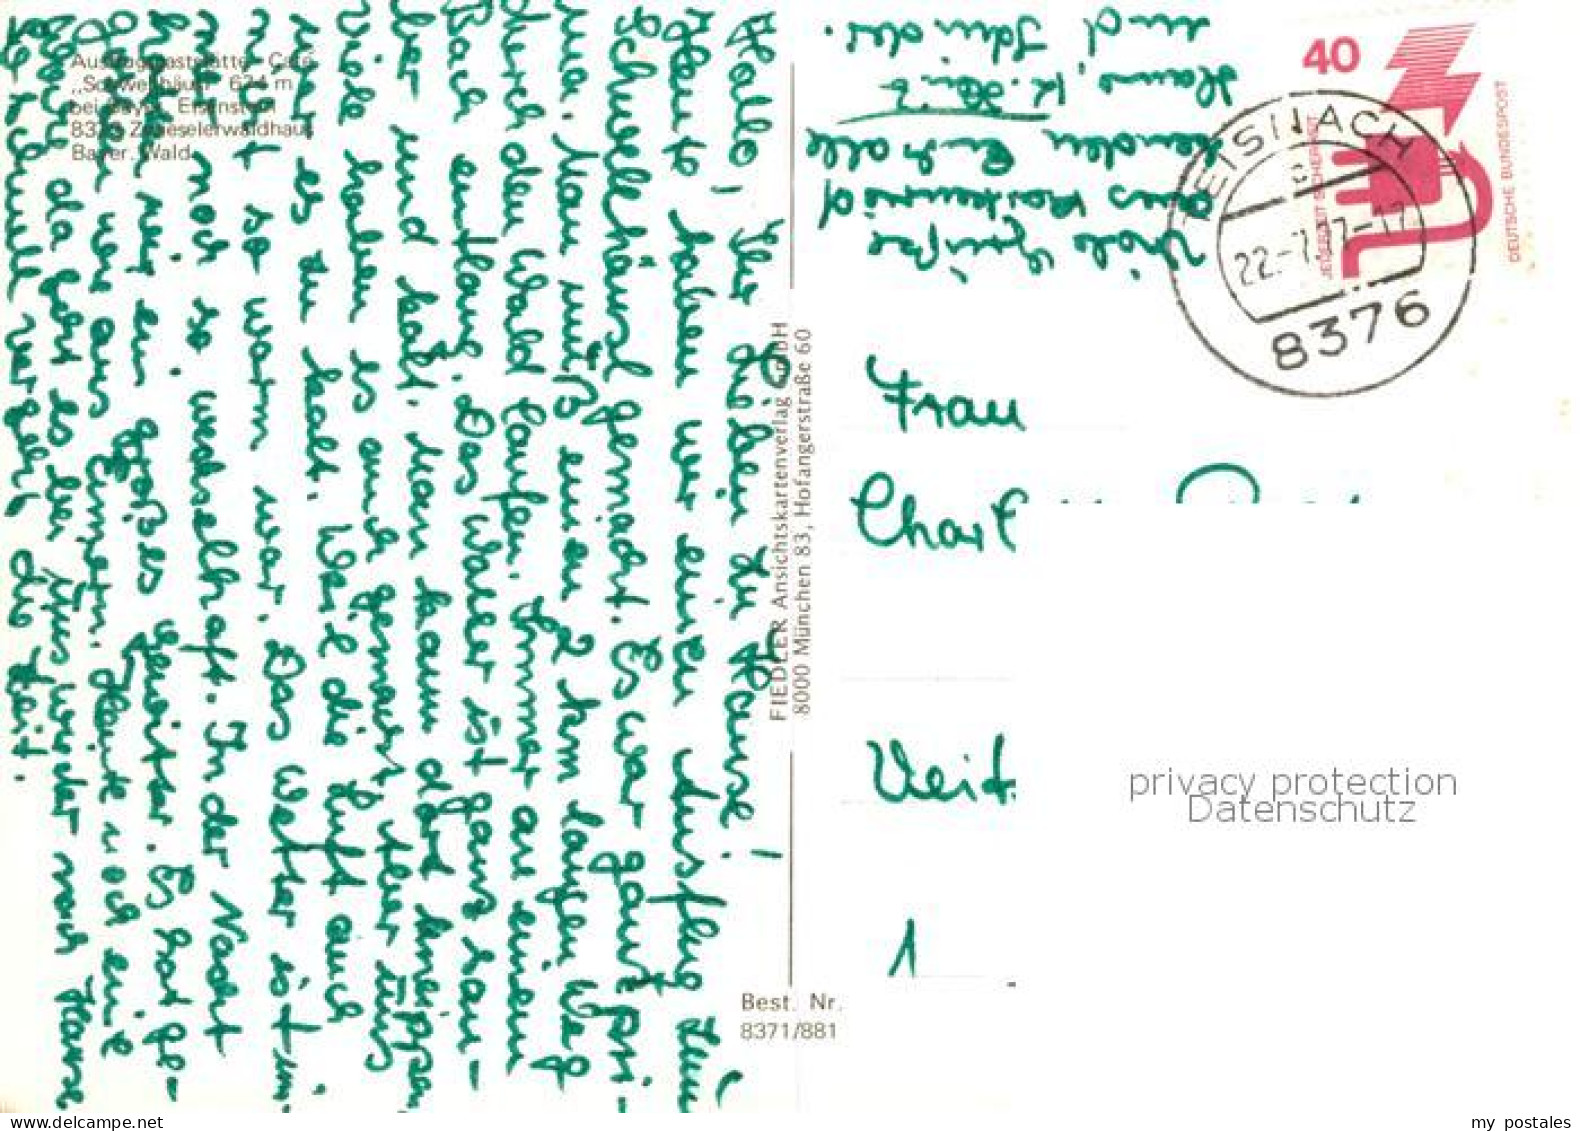 Ausflugsgaststätte - Café
„Schwellhäusl" 674 m
bei Bayer. Eisenstein
8371 Zwieselerwaldhaus
Bayer. Wald
Hallo, Ihr Lieben zu Hause!
Heute haben wir einen Ausflug zum
Schwellhäusl gemacht. Es war ganz pri-
ma. Man muß einen 2 km langen Weg
durch den Wald laufen. Immer an einem
Bach entlang. Das Wasser ist ganz sau-
ber und kalt. Man kann dort kneippen
Viele haben es auch gemacht, aber uns
war es zu kalt. Weil die Luft auch
nicht so warm war. Das Wetter ist im-
mer noch so wechselhaft. In der Nacht
hatten wir ein großes Gewitter. Es hat ge-
gossen wie aus Eimern. Heute noch eine
Woche da geht es bei uns wieder nach Hause
So schnell vergeht die Zeit.
Viele Grüße
aus
senden Euch alle
Hans,
und
FIEDLER Ansichtskartenverlag GmbH
8000 München 83, Hofangerstraße 60
Best. Nr.
8371/881
40
JEDERZEIT SICHERHEIT
DEUTSCHE BUNDESPOST
TEISNACH
22.-7.77-17
8376
Frau
Charl
Veit
1
privacy protection
Datenschutz
my postales